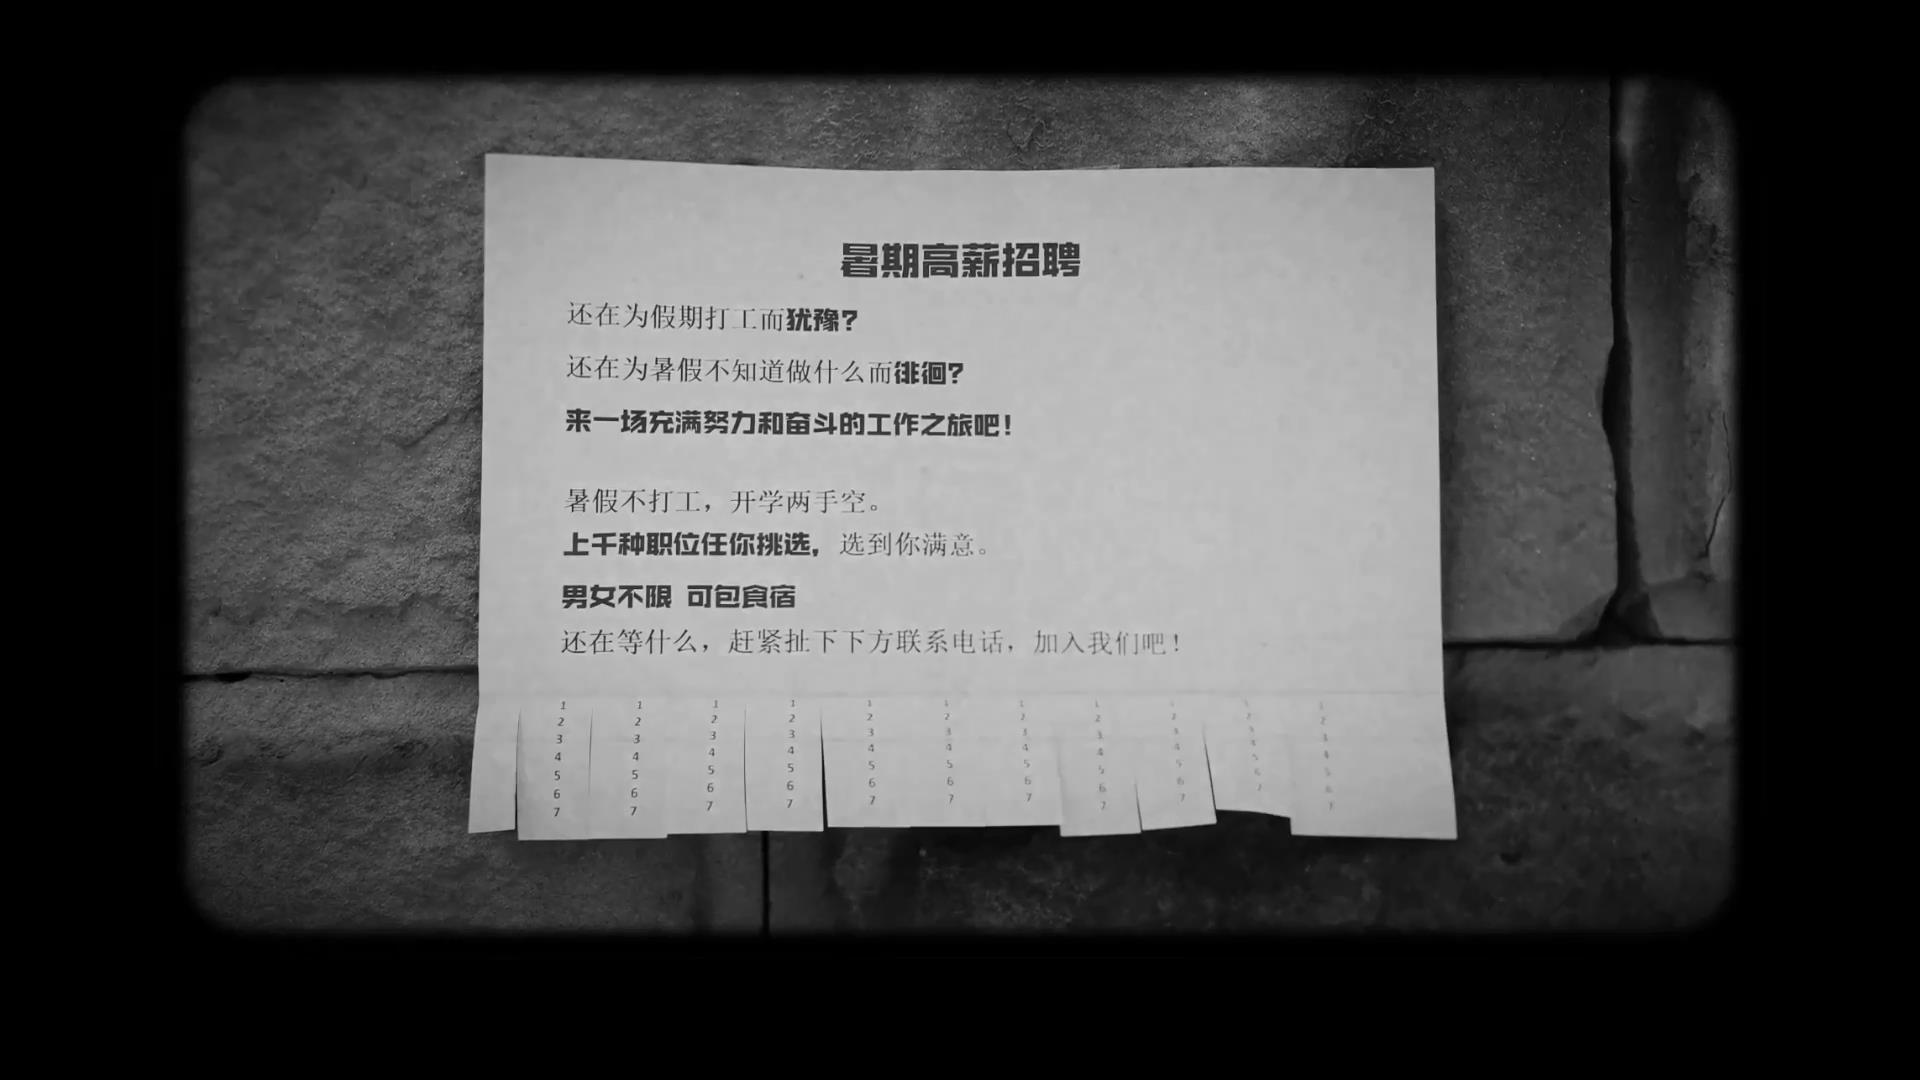 暑期高薪招聘
还在为假期打工而犹豫？
还在为暑假不知道做什么而徘徊？
来一场充满努力和奋斗的工作之旅吧！
暑假不打工，开学两手空。
上千种职位任你挑选，选到你满意。
男女不限 可包食宿
还在等什么，赶紧扯下下方联系电话，加入我们吧！
1234567
1234567
1234567
1234567
1234567
1234567
1234567
1234567
1234567
1234567
1234567